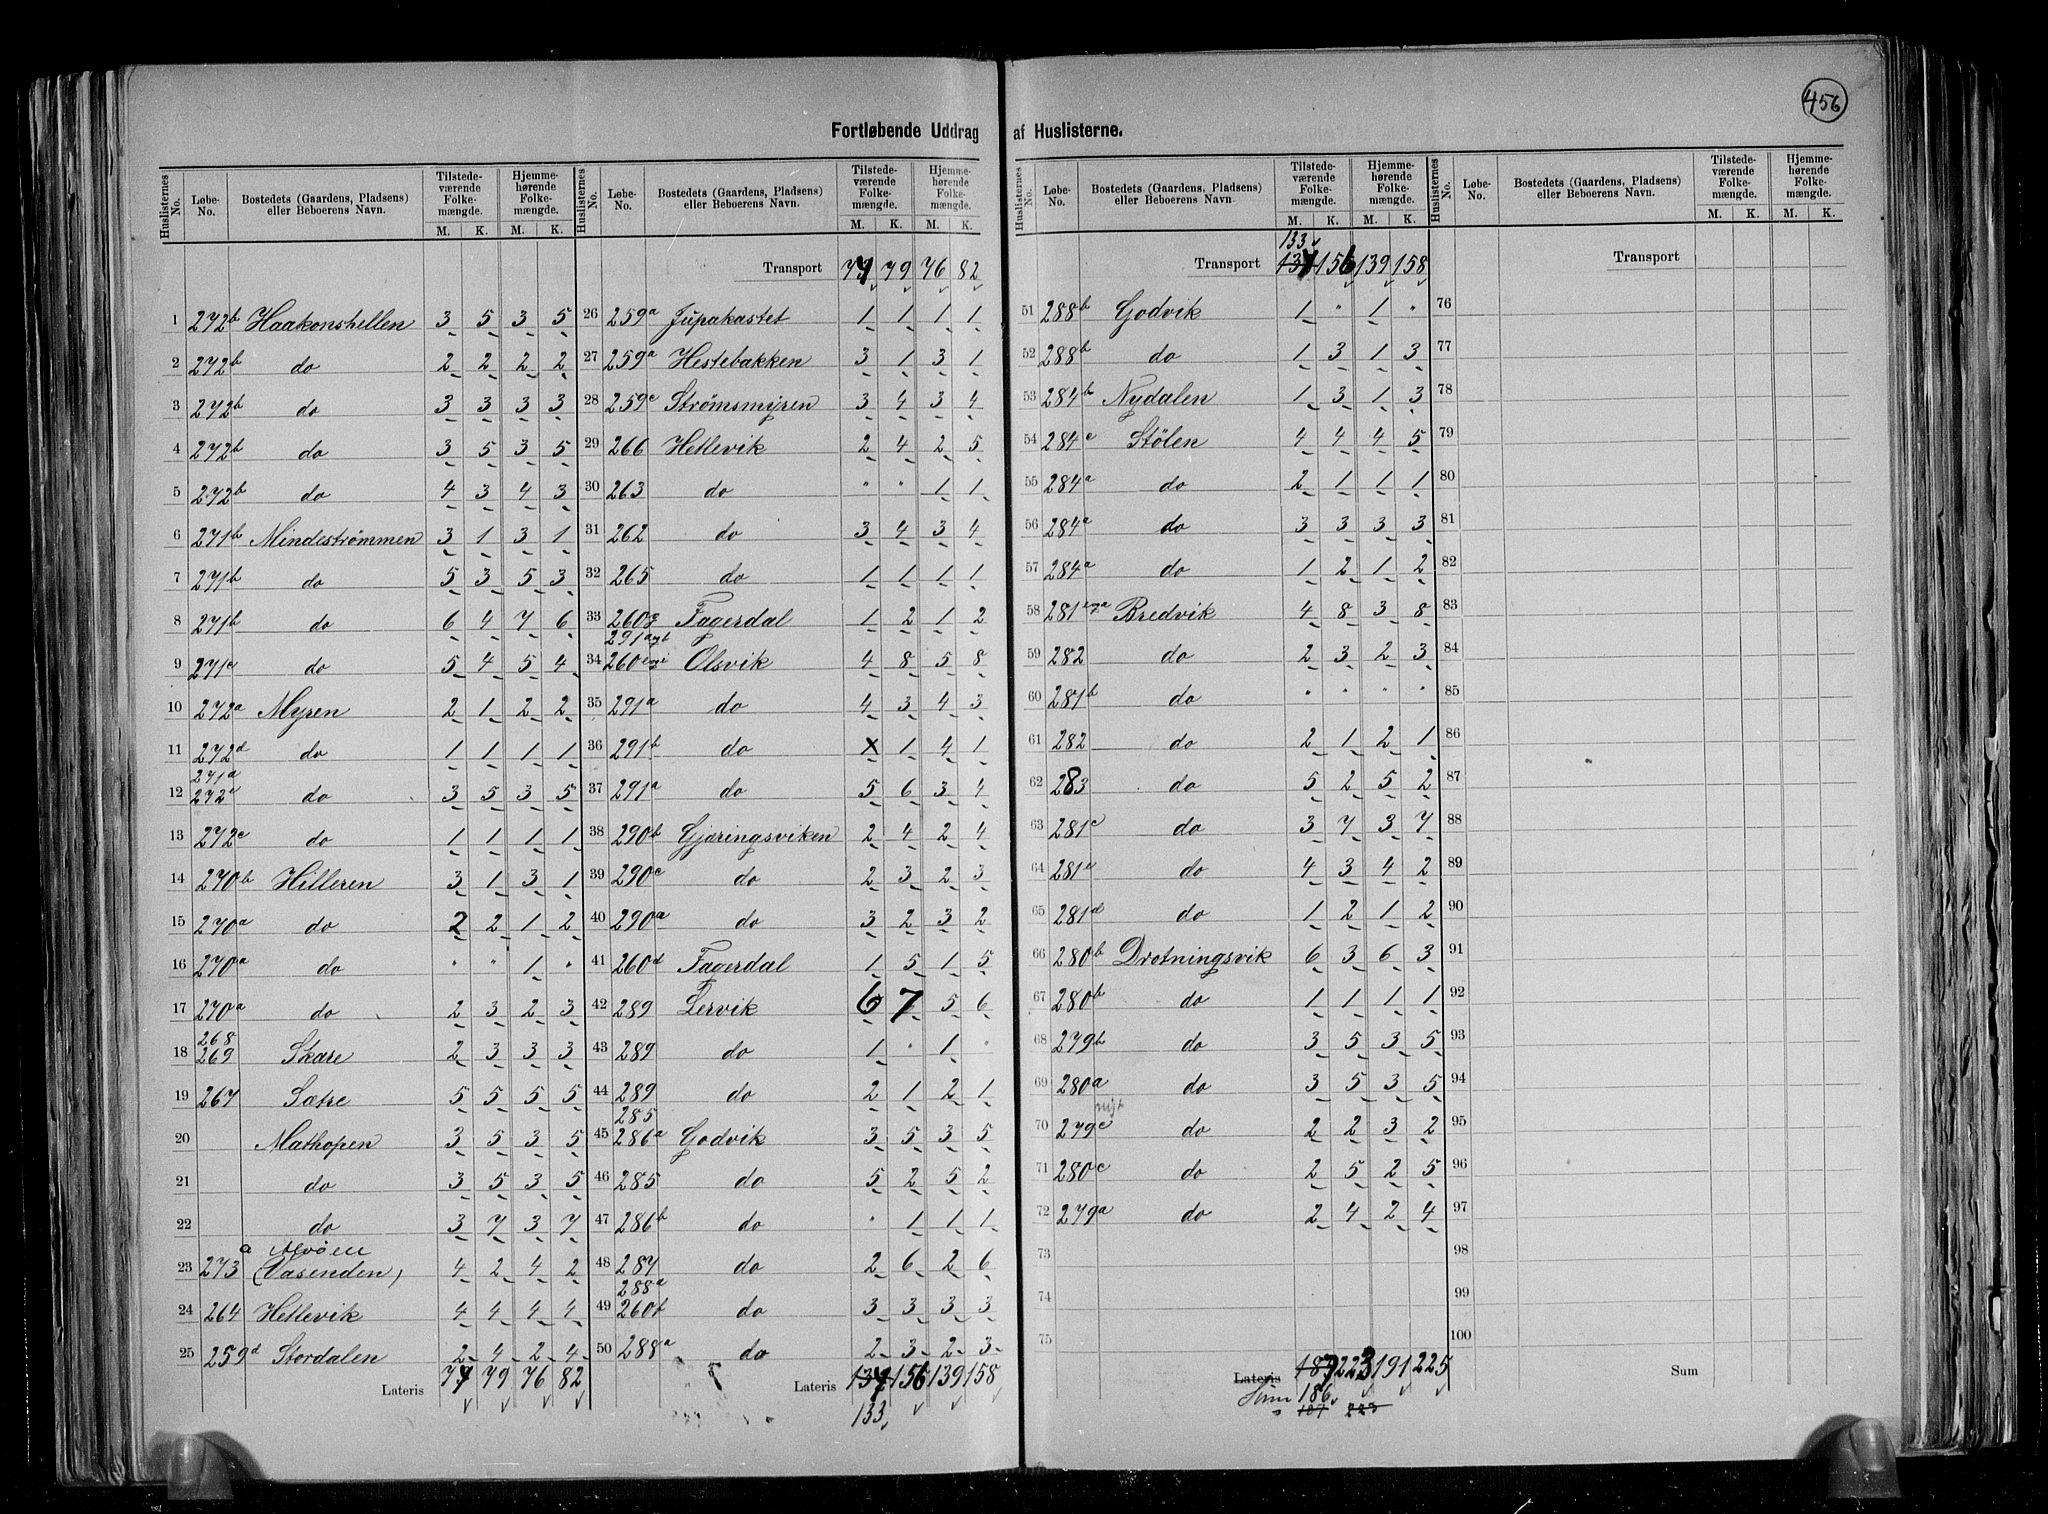 456
Fortløbende Uddrag af Huslisterne.
Huslisternes No. Løbe-No. Bostedets (Gaardens, Pladsens) eller Beboerens Navn. Tilstedeværende Folkemængde. Hjemmehørende Folkemængde.
M. K. M. K.
1 272b Haakonshellen 3 5 3 5
2 272b do 2 2 2 2
3 272b do 3 3 3 3
4 272b do 3 5 3 5
5 272b do 4 3 4 3
6 271b Mindestrømmen 3 1 3 1
7 271b do 5 3 5 3
8 271b do 6 4 7 6
9 271c do 5 4 5 4
10 272a Myren 2 1 2 2
11 272d do 1 1 1 1
271a
12 272c do 3 5 3 5
13 272c do 1 1 1 1
14 270b Hilleren 3 1 3 1
15 270a do 2 2 1 2
16 270a do " " 1 "
17 270a do 2 3 2 3
268
18 269 Skare 2 3 3 3
19 267 Sætre 5 5 5 5
20 Mathopen 3 5 3 5
21 do 3 5 3 5
22 do 3 7 3 7
a Alvøen
23 273 (Vasenden) 4 2 4 2
24 264 Hetlevik 4 4 4 4
25 259d Stordalen 2 4 2 4
Lateris 77 79 76 82
Huslisternes No. Løbe-No. Bostedets (Gaardens, Pladsens) eller Beboerens Navn. Tilstedeværende Folkemængde. Hjemmehørende Folkemængde.
M. K. M. K.
Transport 77 79 76 82
26 259a Jupakastet 1 1 1 1
27 259a Hestebakken 3 1 3 1
28 259c Strømsmyren 3 4 3 4
29 266 Hetlevik 2 4 2 5
30 263 do " " 1 1
31 262 do 3 4 3 4
32 265 do 1 1 1 1
33 260g Fagerdal 1 2 1 2
291agb
34 260 Olsvik 4 8 5 8
35 291a do 4 3 4 3
36 291b do x 1 4 1
37 291a do 5 6 3 4
38 290b Gjæringsviken 2 4 2 4
39 290c do 2 3 2 3
40 290a do 3 2 3 2
41 260d Fagerdal 1 5 1 5
42 289 Lervik 6 7 5 6
43 289 do 1 " 1 "
44 289 do 2 1 2 1
285
45 286a Godvik 3 5 3 5
46 285 do 5 2 5 2
47 286b do " 1 1 1
48 287 do 2 6 2 6
288a
49 260f do 3 3 3 3
50 288a do 2 3 2 3
Lateris 137 156 139 158
133
Huslisternes No. Løbe-No. Bostedets (Gaardens, Pladsens) eller Beboerens Navn. Tilstedeværende Folkemængde. Hjemmehørende Folkemængde.
M. K. M. K.
133
Transport 137 156 139 158
51 288b Godvik 1 " 1 "
52 288b do 1 3 1 3
53 284b Nydalen 1 3 1 3
54 284c Stølen 4 4 4 5
55 284a do 2 1 1 1
56 284a do 3 3 3 3
57 284a do 1 2 1 2
58 281 Bredvik 4 8 3 8
59 282 do 2 3 2 3
60 281b do " " " "
61 282 do 2 1 2 1
62 283 do 5 2 5 2
63 281c do 3 7 3 7
64 281e do 4 3 4 2
65 281d do 1 2 1 2
66 280b Drotningsvik 6 3 6 3
67 280b do 1 1 1 1
68 279b do 3 5 3 5
69 280a do 3 5 3 5
nyt
70 279c do 2 2 3 2
71 280c do 2 5 2 5
72 279a do 2 4 2 4
73
74
75
Lateris 187 223 191 225
Sum 186
187 223
Huslisternes No. Løbe-No. Bostedets (Gaardens, Pladsens) eller Beboerens Navn. Tilstedeværende Folkemængde. Hjemmehørende Folkemængde.
M. K. M. K.
Transport
76
77
78
79
80
81
82
83
84
85
86
87
88
89
90
91
92
93
94
95
96
97
98
99
100
Sum